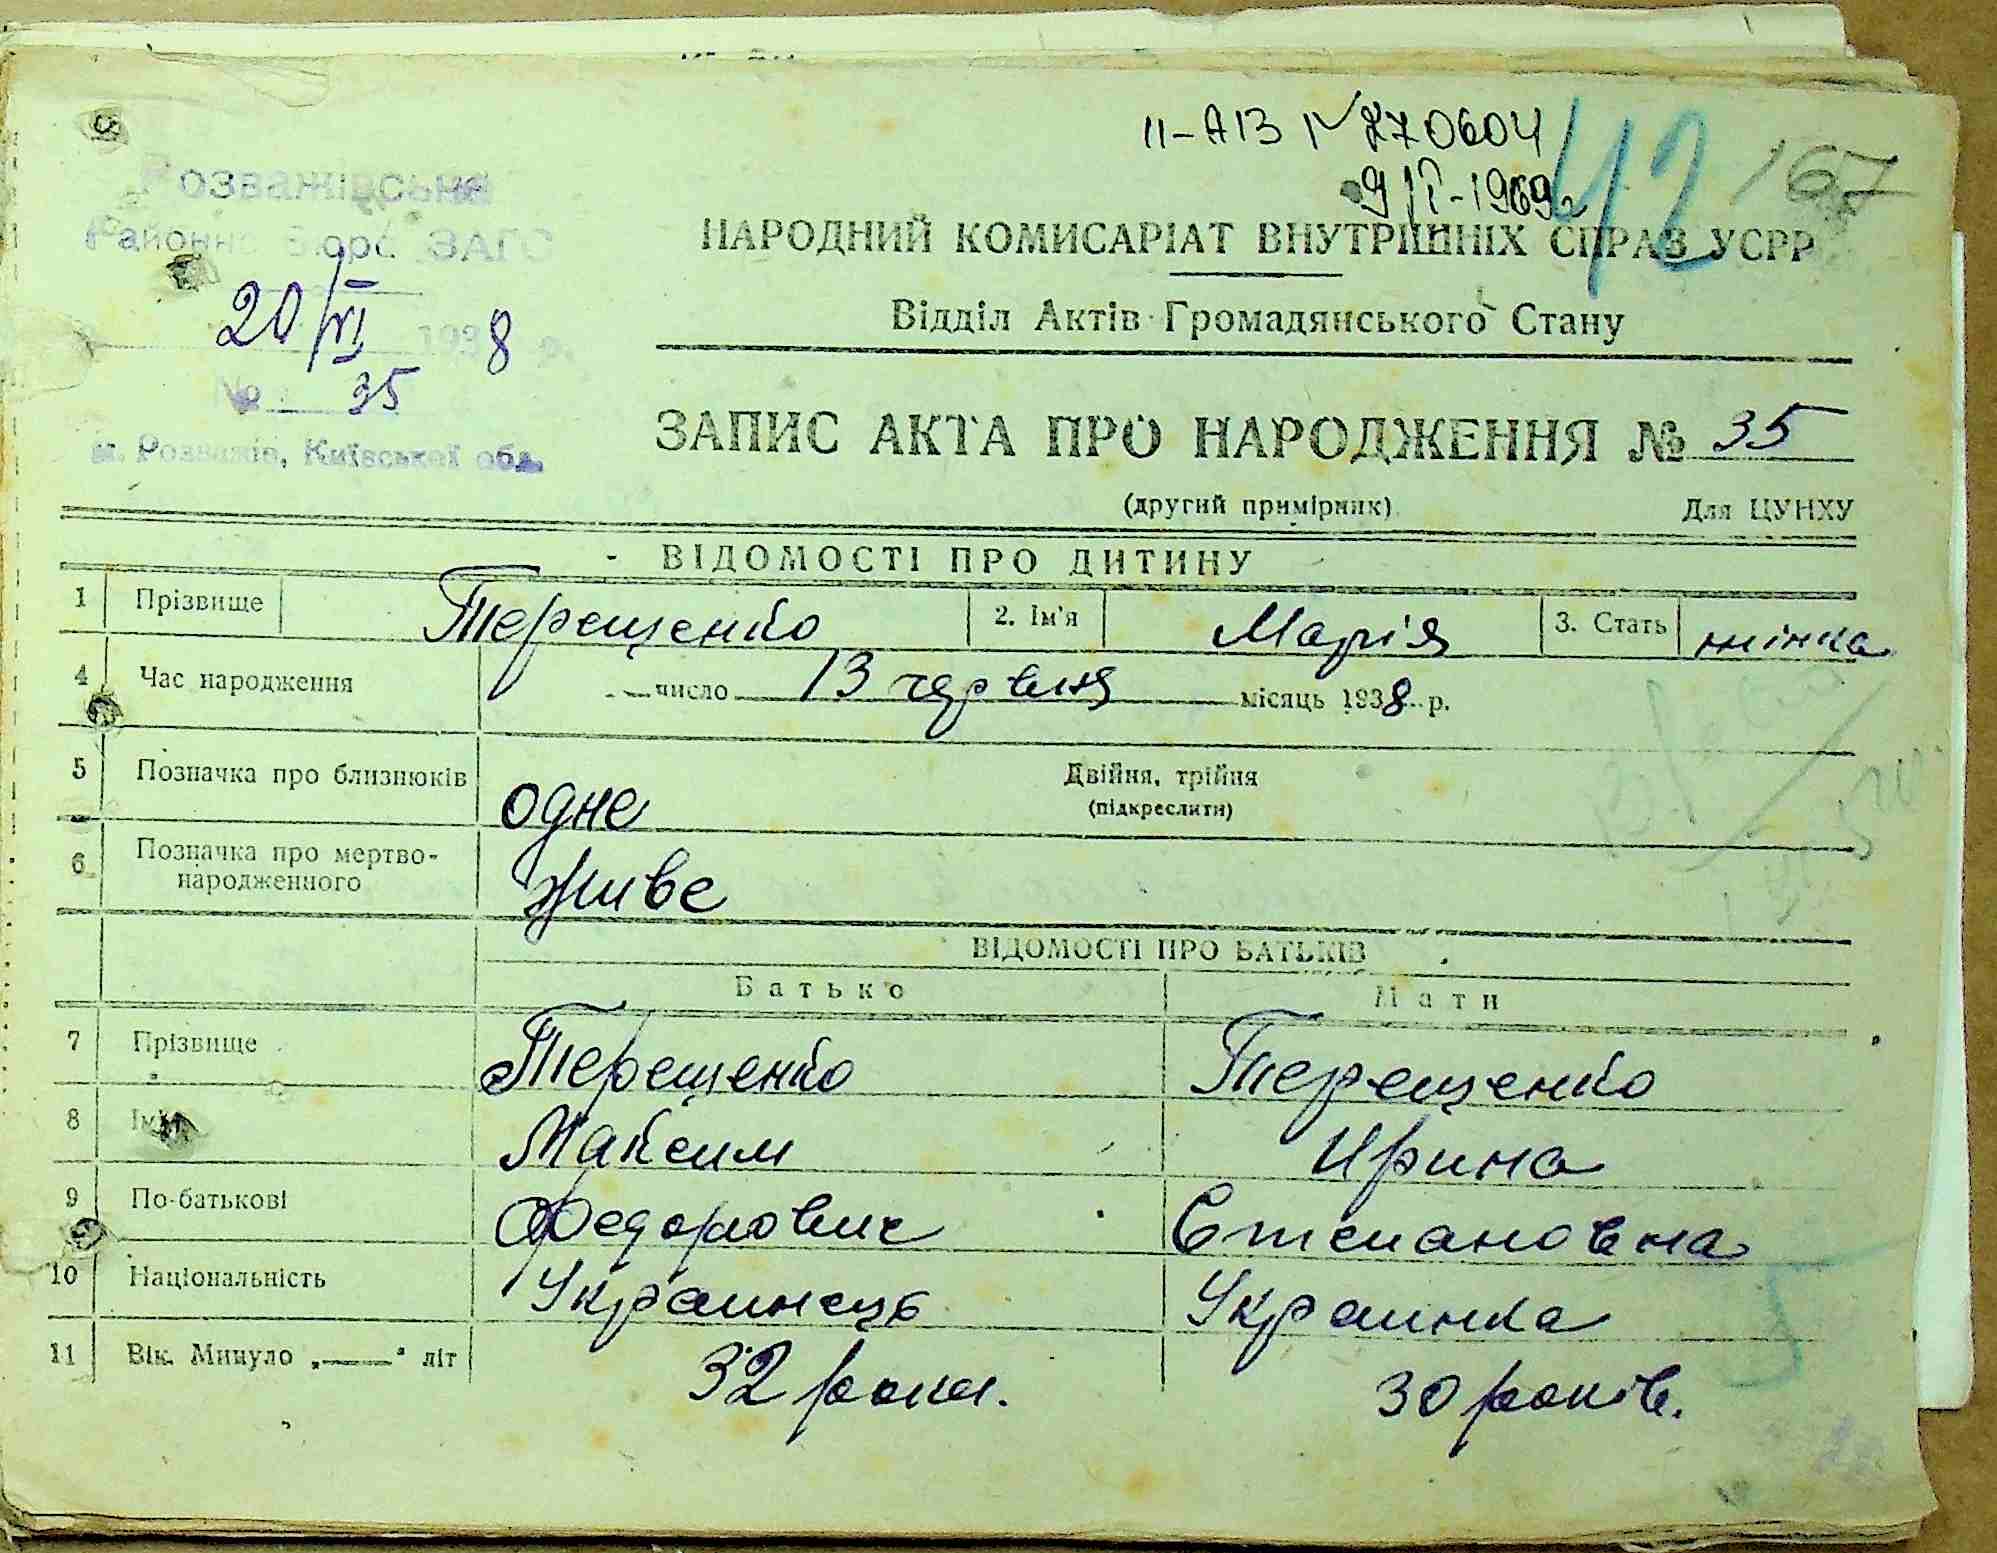 II-АІЗ № 270604
42
167
Розважівське
Районне Бюро ЗАГС
20/VI 1938 р.
№ 35
м. Розважів, Київської обл.
НАРОДНИЙ КОМИСАРІАТ ВНУТРІШНІХ СПРАВ УСРР
Відділ Актів Громадянського Стану
ЗАПИС АКТА ПРО НАРОДЖЕННЯ № 35
(другий примірник) Для ЦУНХУ
ВІДОМОСТІ ПРО ДИТИНУ
1 Прізвище Терещенко 2. Ім'я Марія 3. Стать жінка
4 Час народження число 13 червня місяць 1938 р.
5 Позначка про близнюків одне Двійня, трійня
(підкреслити)
6 Позначка про мертво-
народженного живе
ВІДОМОСТІ ПРО БАТЬКІВ
Батько Мати
7 Прізвище Терещенко Терещенко
8 Ім'я Максим Ирина
9 По-батькові Федорович Степановна
10 Національність Украинець Украинка
11 Вік. Минуло „——“ літ 32 роки. 30 років.